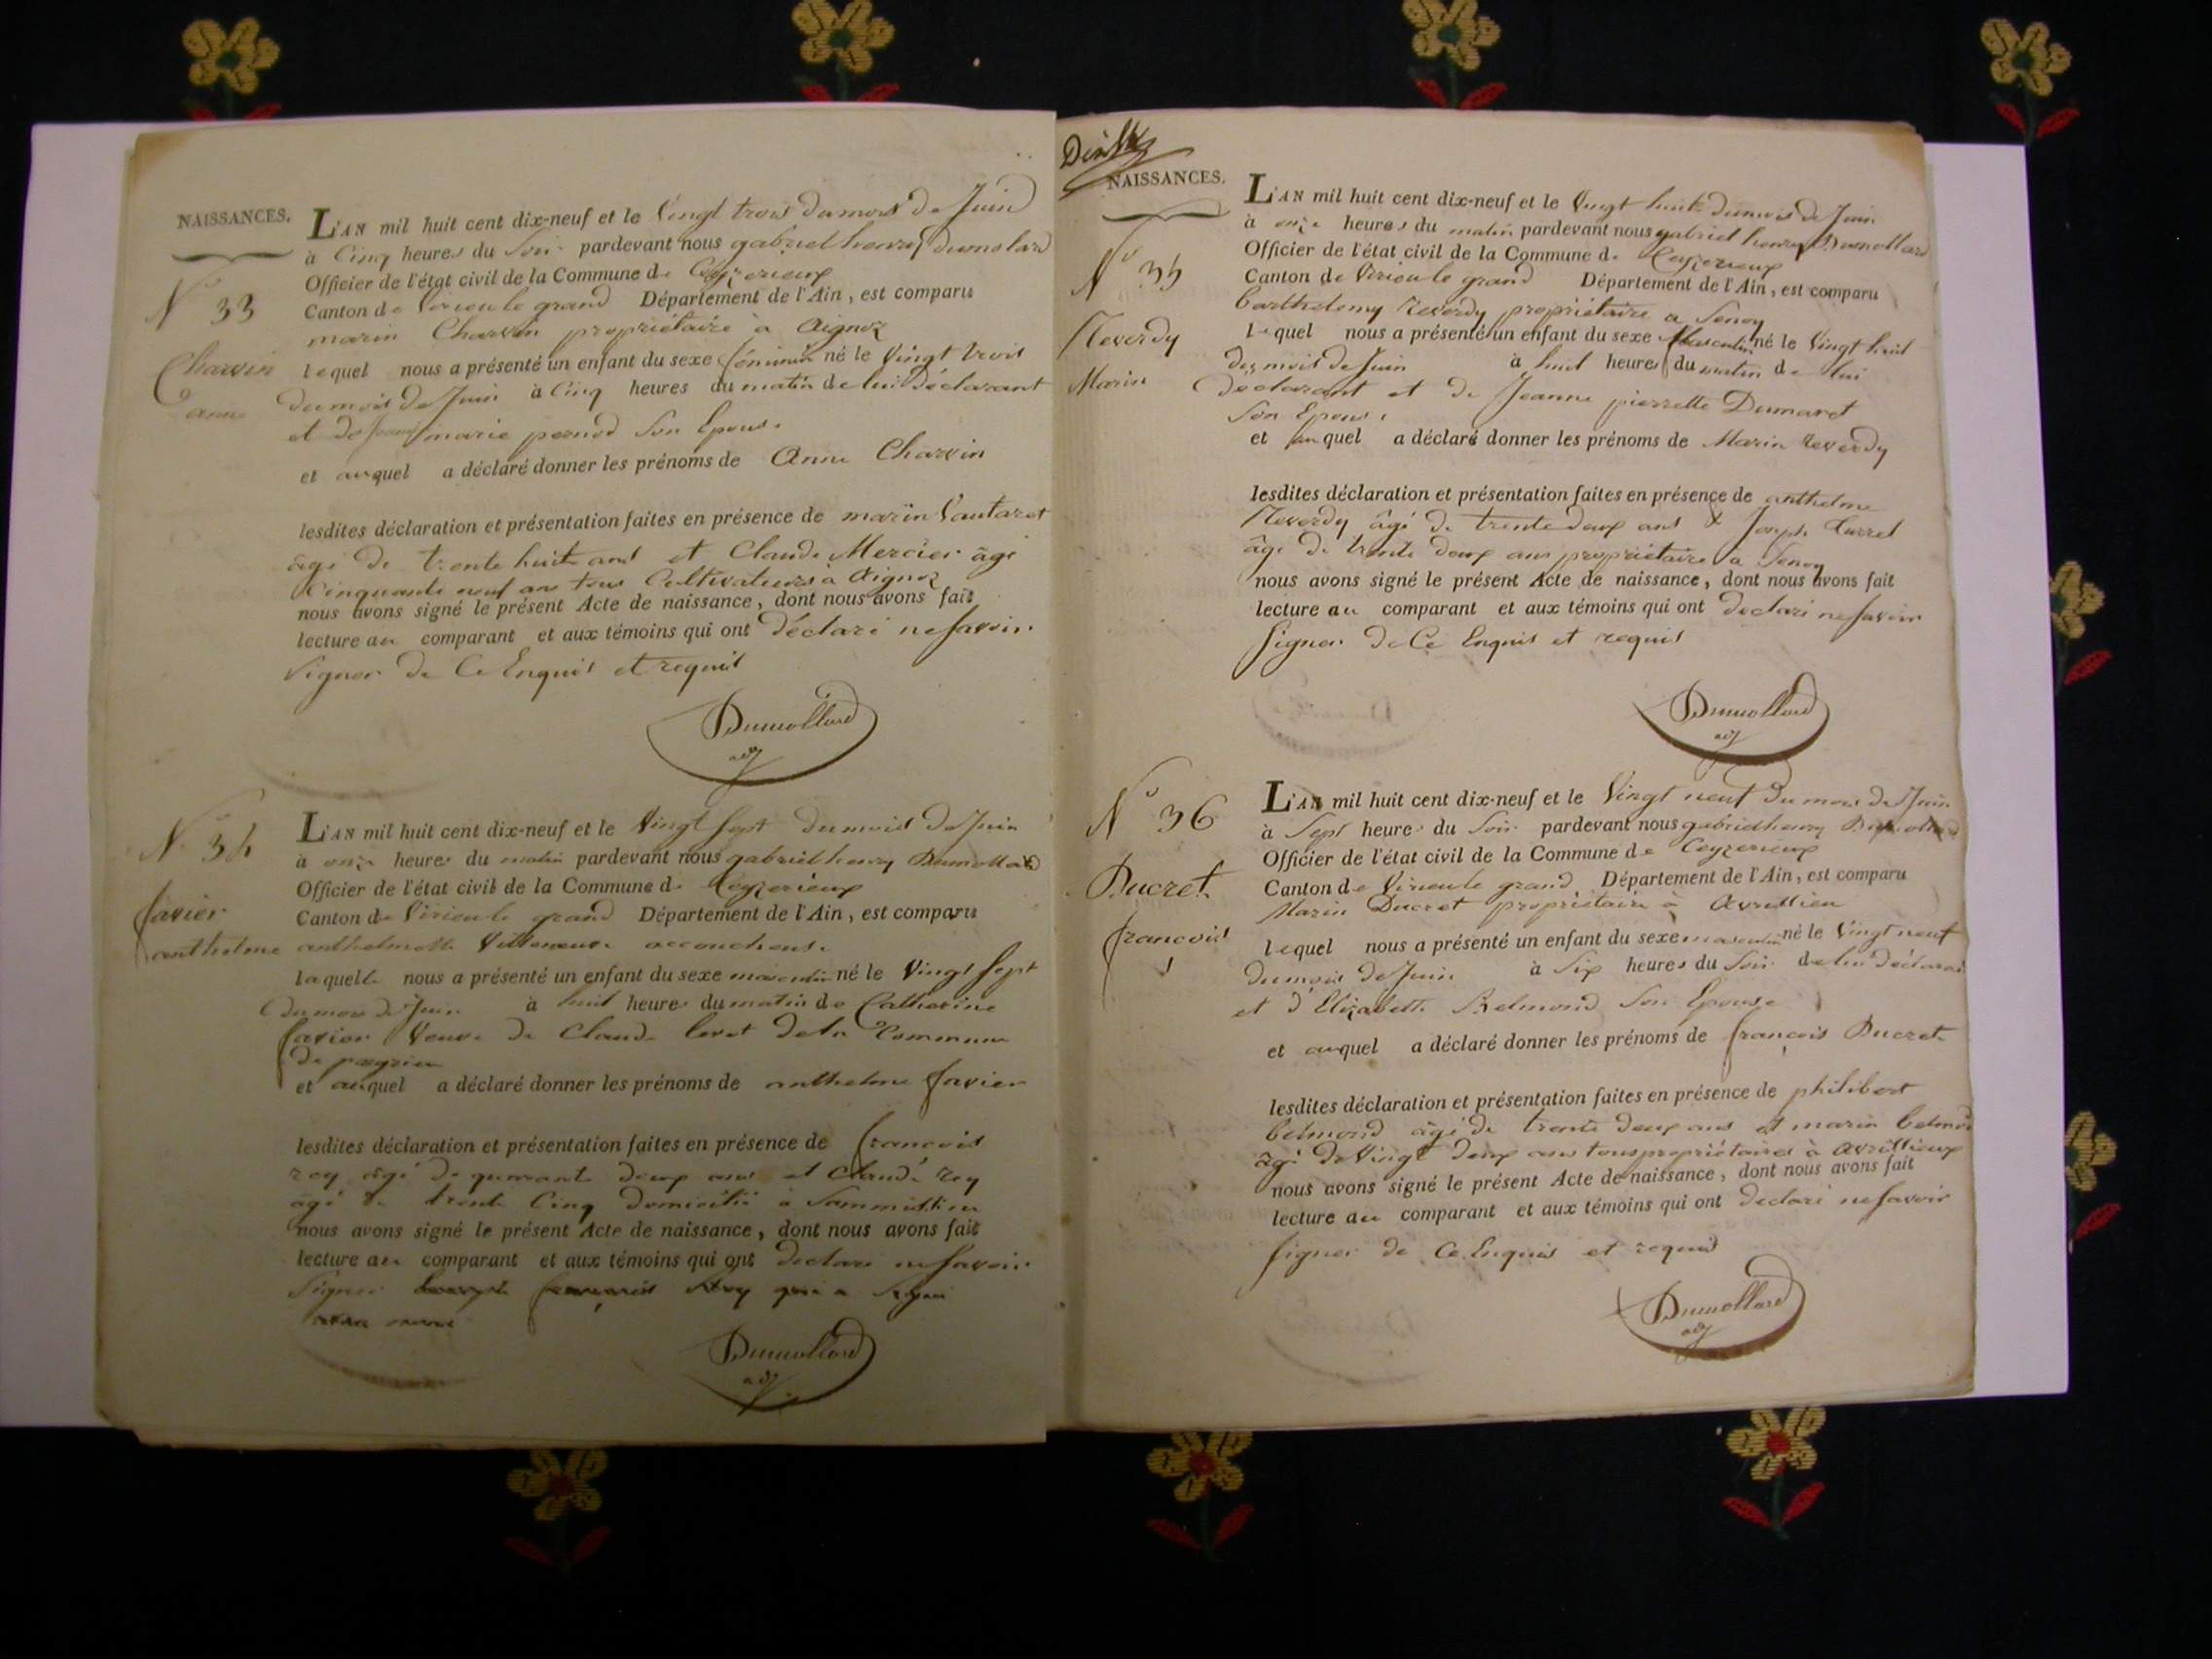 NAISSANCES.
L'AN mil huit cent dix-neuf et le Vingt trois du mois de Juin
à Cinq heures du Soir pardevant nous gabriel henry dumolard
Officier de l'état civil de la Commune de Ceyzerieux
N° 33
Canton de Virieu le grand Département de l'Ain, est comparu
marin Charvin propriétaire à Aignoz
Charvin
anne
lequel nous a présenté un enfant du sexe féminin né le Vingt trois
du mois de Juin à Cinq heures du matin de lui déclarant
et de marie pernod Son Epouse
et auquel a déclaré donner les prénoms de Anne Charvin
lesdites déclaration et présentation faites en présence de marin Vautaret
âgé de trente huit ans et Claude Mercier âgé
Cinquante neuf ans tous Cultivateurs à Aignoz
nous avons signé le présent Acte de naissance, dont nous avons fait
lecture au comparant et aux témoins qui ont déclaré ne Savoir
Signer de Ce Enquis et requis
Dumollard
adj
N° 34
favier
anthelme
L'AN mil huit cent dix-neuf et le Vingt Sept du mois de Juin
à onze heures du matin pardevant nous gabriel henry Dumollard
Officier de l'état civil de la Commune de Ceyzerieux
Canton de Virieu le grand Département de l'Ain, est comparu
anthelmette Villeneuve accoucheuse
laquelle nous a présenté un enfant du sexe masculin né le Vingt Sept
du mois de Juin à huit heures du matin de Catherine
favier Veuve de Claude de la Commune
de
et auquel a déclaré donner les prénoms de anthelme favier
lesdites déclaration et présentation faites en présence de françois
rey âgé de quarante deux ans et Claude rey
âgé de trente Cinq domicilié à
nous avons signé le présent Acte de naissance, dont nous avons fait
lecture au comparant et aux témoins qui ont déclaré ne Savoir
Signer
Dumollard
adj
NAISSANCES.
L'AN mil huit cent dix-neuf et le Vingt huit du mois de Juin
à onze heures du matin pardevant nous gabriel henry Dumollard
Officier de l'état civil de la Commune de Ceyzerieux
N° 35
Canton de Virieu le grand Département de l'Ain, est comparu
barthelemy Reverdy propriétaire a Senoy
Reverdy
Marin
lequel nous a présenté un enfant du sexe Masculin né le Vingt huit
du mois de Juin à huit heures du matin de lui
déclarant et de Jeanne pierrette Dumaret
Son Epouse
et auquel a déclaré donner les prénoms de Marin reverdy
lesdites déclaration et présentation faites en présence de anthelme
Reverdy âgé de trente deux ans & Joseph
âgé de trente deux ans propriétaire a Senoy
nous avons signé le présent Acte de naissance, dont nous avons fait
lecture au comparant et aux témoins qui ont déclaré ne Savoir
Signer de Ce Enquis et requis
Dumollard
adj
N° 36
Ducret
françois
L'AN mil huit cent dix-neuf et le Vingt neuf du mois de Juin
à Sept heures du Soir pardevant nous gabriel henry Dumollard
Officier de l'état civil de la Commune de Ceyzerieux
Canton de Virieu le grand Département de l'Ain, est comparu
Marin Ducret propriétaire à Avrillieu
lequel nous a présenté un enfant du sexe masculin né le Vingt neuf
du mois de Juin à Six heures du Soir de lui déclarant
et d'Elizabeth Belmond Son Epouse
et auquel a déclaré donner les prénoms de françois Ducret
lesdites déclaration et présentation faites en présence de philibert
belmond âgé de trente deux ans et marin belmond
âgé de Vingt deux ans tous propriétaires à
nous avons signé le présent Acte de naissance, dont nous avons fait
lecture au comparant et aux témoins qui ont déclaré ne Savoir
Signer de Ce Enquis et requis
Dumollard
adj